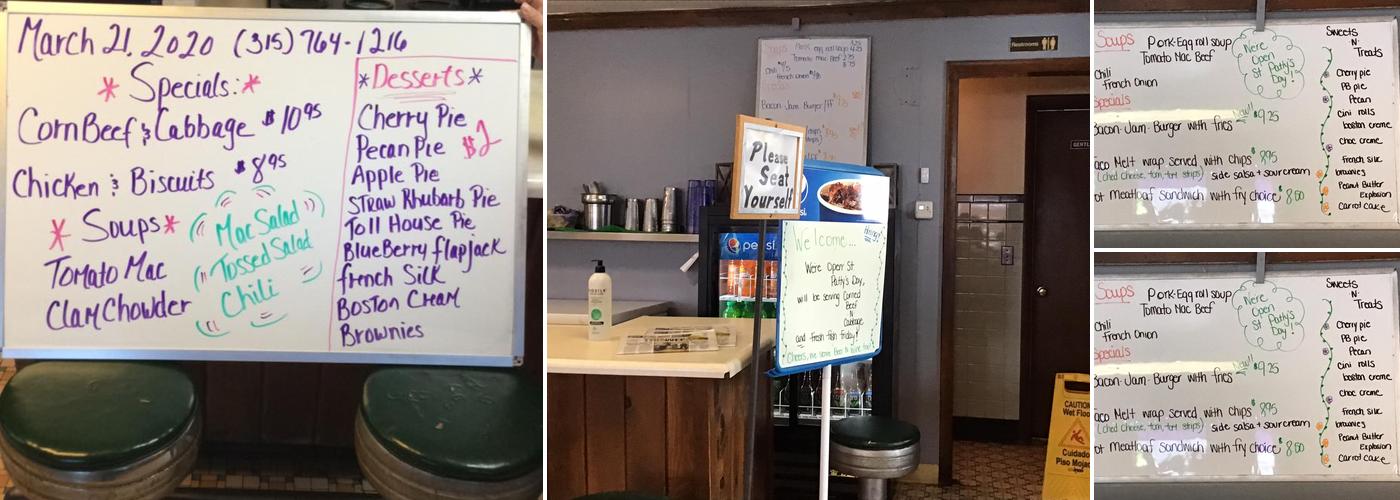 March 21, 2020 (315) 764-1216
* Specials: *
Corn Beef & Cabbage $10 95
Chicken & Biscuits $8 95
* Soups *
Tomato Mac
Clam Chowder
Mac Salad
Tossed Salad
Chili
* Desserts *
Cherry Pie
Pecan Pie $2
Apple Pie
Straw Rhubarb Pie
Toll House Pie
BlueBerry flapjack
french Silk
Boston Cream
Brownies
Restrooms
Pork egg roll soup
Tomato Mac Beef
Chili
French Onion
Bacon Jam Burger/FF
Please
Seat
Yourself
pepsi
Welcome...
We're Open St
Patty's Day,
will be serving Corned
Beef
N
Cabbage
and fresh fish friday!
Cheers, we serve Beer & Wine too!
GENTL
CAUTIO
Wet Floo
Cuidado
Piso Mojad
Soups Pork-Egg roll soup
Tomato Mac Beef
Chili
French Onion
We're
Open
St Patty's
Day!
Specials
New!!
Bacon-Jam-Burger with fries $9.25
aco Melt wrap served with chips $8.95
(ched cheese, tom, tort strips) side salsa + sour cream
ot Meatloaf sandwich with fry choice $8.00
Sweets
N
Treats
Cherry pie
PB pie
Pecan
Cini rolls
boston creme
choc creme
french silk
brownies
Peanut Butter
Explosion
Carrot cake
Soups Pork-Egg roll soup
Tomato Mac Beef
Chili
French Onion
We're
Open
St Patty's
Day!
Specials
New!!
Bacon-Jam-Burger with fries $9.25
aco Melt wrap served with chips $8.95
(ched cheese, tom, tort strips) side salsa + sour cream
ot Meatloaf sandwich with fry choice $8.00
Sweets
N
Treats
Cherry pie
PB pie
Pecan
Cini rolls
boston creme
choc creme
french silk
brownies
Peanut Butter
Explosion
Carrot cake